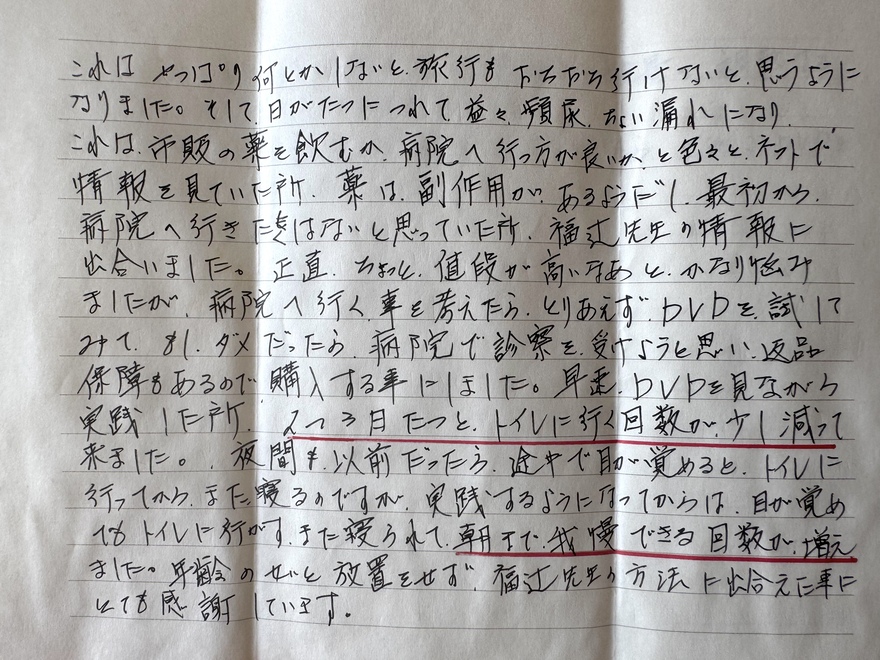 これは やっぱり何とかしないと、旅行も おちおち行けないと、思うように
なりました。そして、日がたつにつれて、益々、頻尿、ちょい漏れになり、
これは、市販の薬を飲むか、病院へ行っ方が良いか、と色々と、ネットで、
情報を見ていた所、薬は、副作用が、あるようだし、最初から、
病院へ行きたくはないと思っていた所、福辻先生の情報に
出合いました。正直、ちょっと、値段が高いなあと、かなり悩み
ましたが、病院へ行く、事を考えたら、とりあえず、DVDを、試して
みて、もし、ダメだったら、病院で診察を、受けようと思い、返品
保障もあるので、購入する事にしました。早速、DVDを見ながら
実践した所、2つ3日たつと、トイレに行く回数が、少し減って
来ました。夜間も、以前だったら、途中で目が覚めると、トイレに
行ってから、また、寝るのですが、実践するようになってからは、目が覚め
ても トイレに行かず、また寝られて、朝まで、我慢できる回数が、増え
ました。年齢のせいと放置をせず、福辻先生の方法に出合えた事に
とても感謝しています。